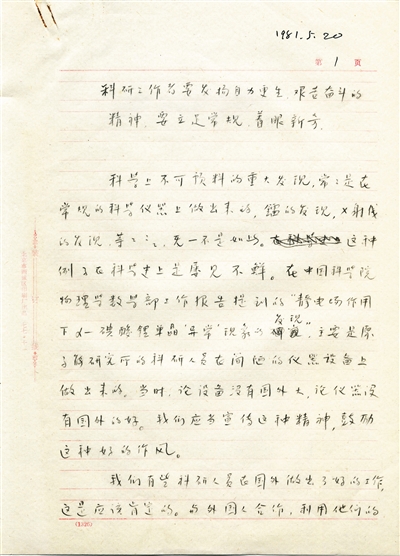 1981.5.20
第 1 页
科研工作者要发扬自力更生、艰苦奋斗的
精神，要立足常规，着眼新奇
科学上不可预料的重大发现，常常是在
常规的科学仪器上做出来的，镭的发现，X射线
的发现，等等，无一不是如此。这种
例子在科学史上是屡见不鲜。在中国科学院
物理学数学部工作报告提到的"静电场作用
下α-碘酸锂单晶'异常'现象"的发现，主要是原
子研究所的科研人员在简陋的仪器设备上
做出来的。当时，论设备没有国外大，论仪器没
有国外的好。我们应当宣传这种精神，鼓励
这种好的作风。
我们有些科研人员在国外做出了好的工作，
这是应该肯定的。与外国人合作，利用他们的